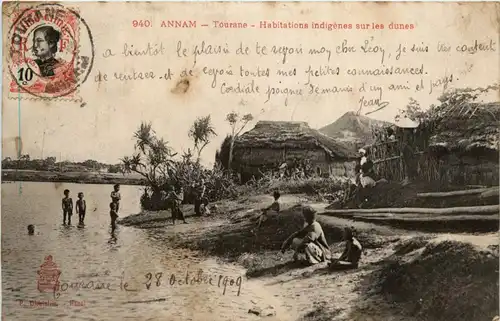 940. ANNAM — Tourane - Habitations indigènes sur les dunes
TOURANE
10
a bientôt le plaisir de te revoir mon cher Léon, je suis très content
de rentrer et de revoir toutes mes petites connaissances.
Cordiale poignée de mains d'un ami et pays.
Jean
Tourane le 28 Octobre 1909